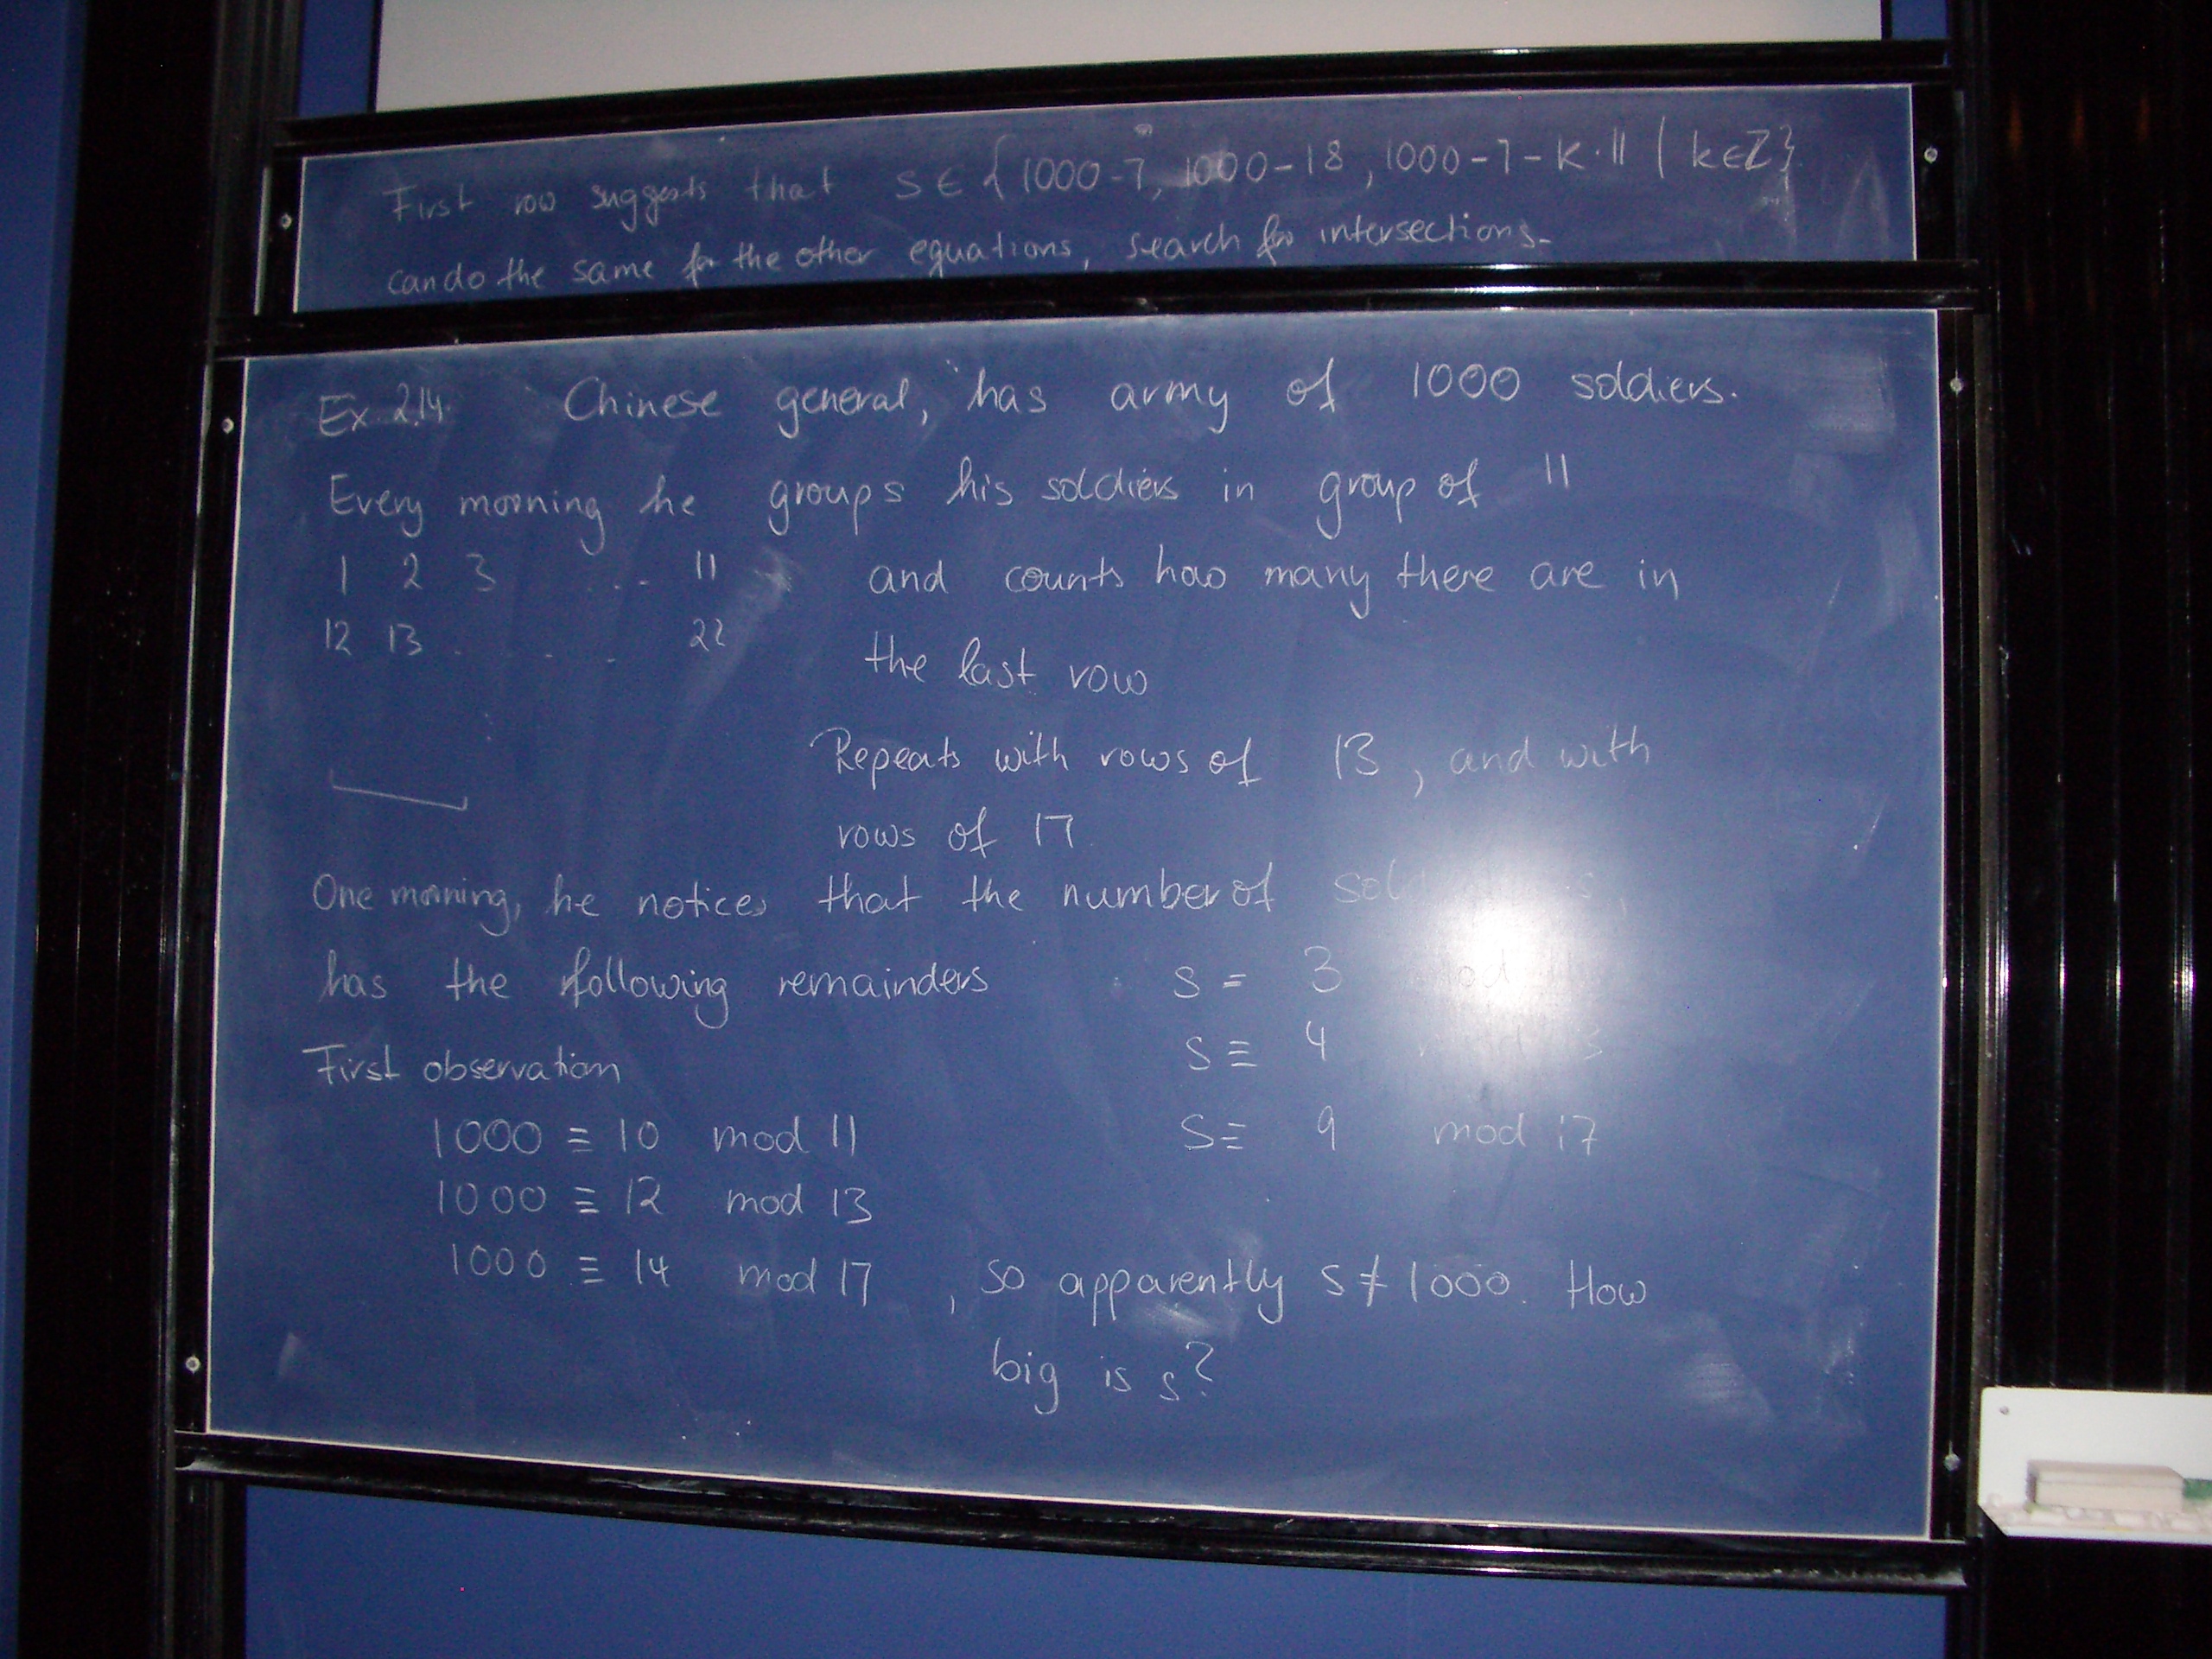 First row suggests that s ∈ {1000-7, 1000-18, 1000-7-k·11 | k∈Z}
can do the same for the other equations, search for intersections.
Ex 2.14. Chinese general, has army of 1000 soldiers.
Every morning he groups his soldiers in group of 11
1 2 3 ... 11 and counts how many there are in
12 13 . . . 22 the last row
Repeats with rows of 13, and with
rows of 17
One morning, he notices that the number of
has the following remainders s = 3 mod
First observation s ≡ 4
1000 ≡ 10 mod 11 s ≡ 9 mod 17
1000 ≡ 12 mod 13
1000 ≡ 14 mod 17, so apparently s ≠ 1000. How
big is s?